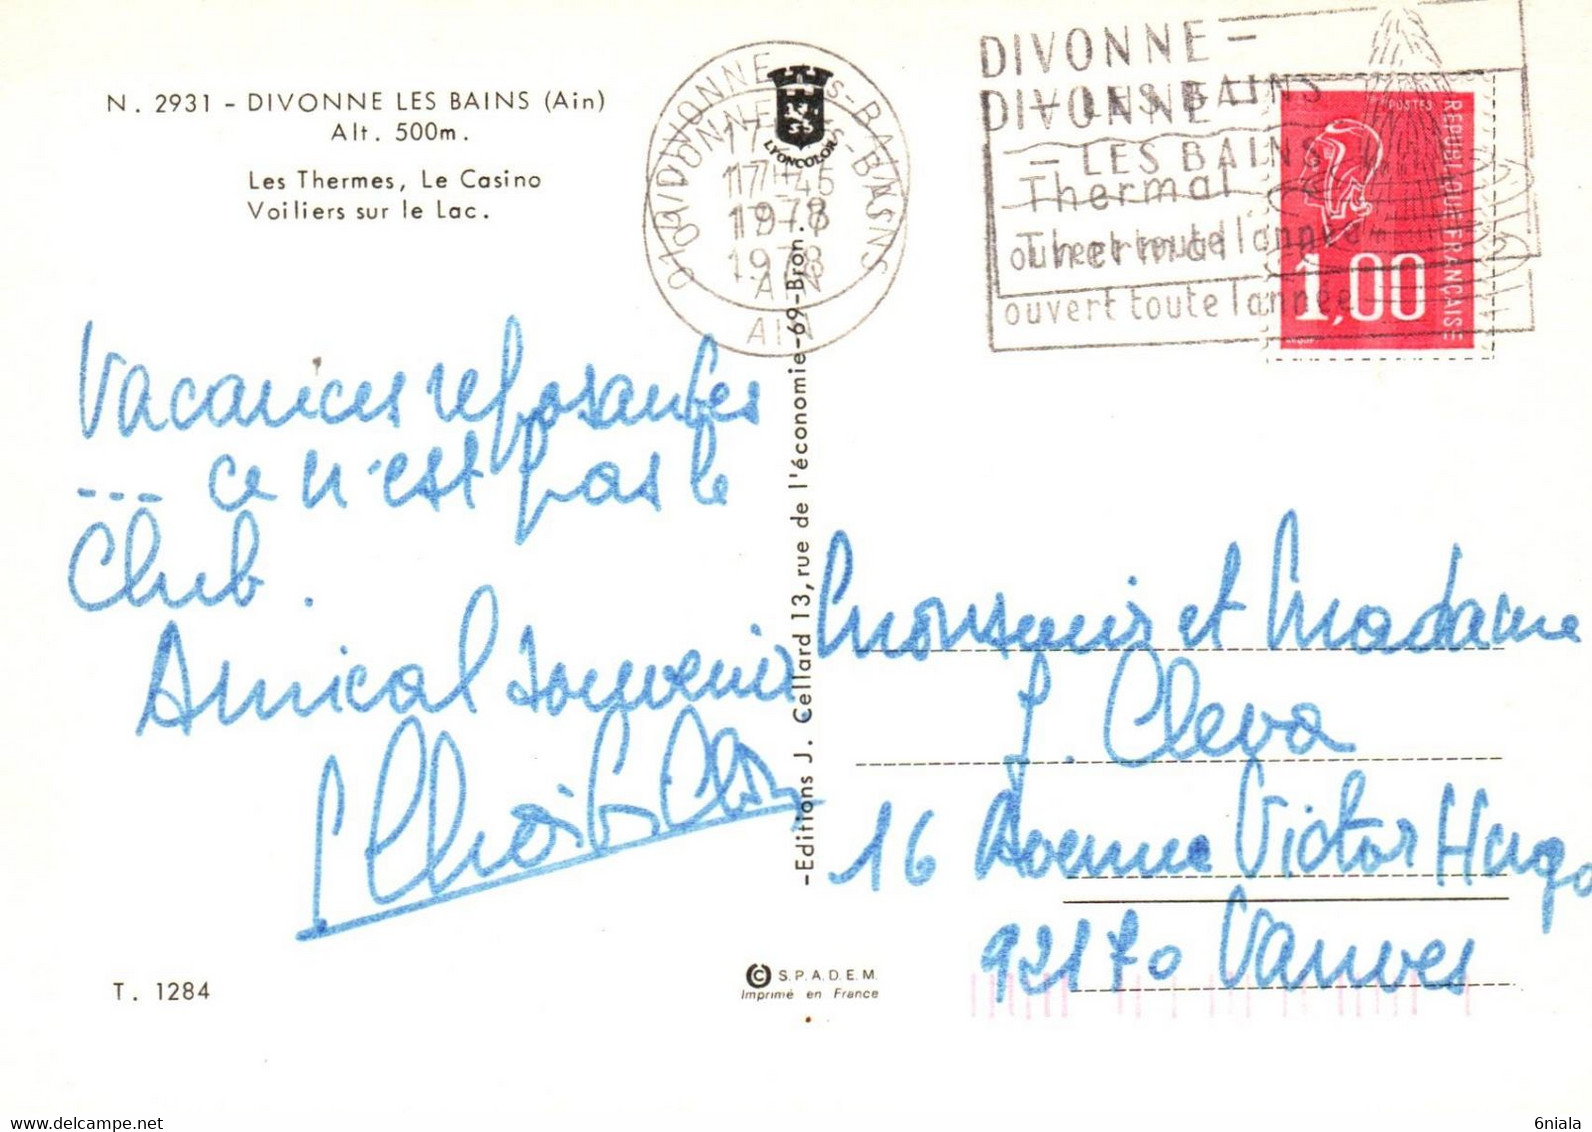 N. 2931 - DIVONNE LES BAINS (Ain)
Alt. 500m.
Les Thermes, Le Casino
Voiliers sur le Lac.
Vacances reposantes
... ce n'est pas le
Club.
Amical souvenir
T. 1284
DIVONNE LES-BAINS
17-7
1978
AIN
LYONCOLOR
-Editions J. Cellard 13, rue de l'économie-69-Bron.
© S.P.A.D.E.M.
Imprimé en France
DIVONNE -
- LES BAINS
Thermal
ouvert toute l'année
DIVONNE
- LES BAINS
Thermal
ouvert toute l'année
POSTES
REPUBLIQUE FRANÇAISE
1,00
Monsieur et Madame
J. Cleva
16 Avenue Victor Hugo
92170 Vanves
vacances voyages
6niala